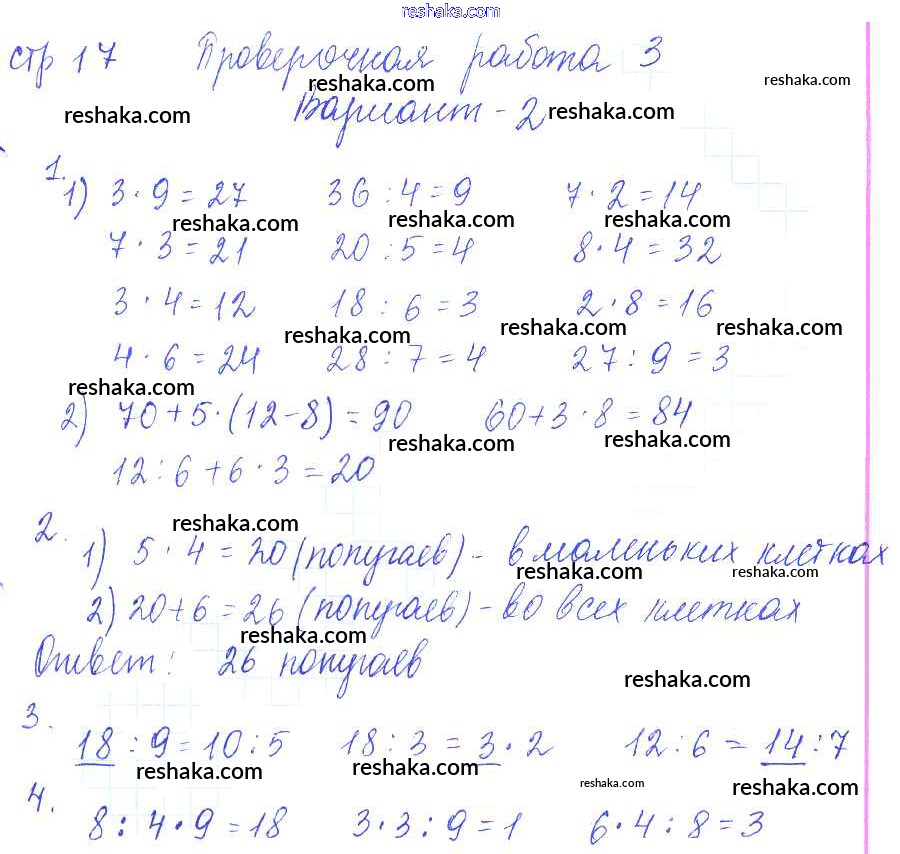 reshaka.com
стр 17 Проверочная работа 3
reshaka.com reshaka.com
Вариант - 2
reshaka.com reshaka.com
1.
1) 3 · 9 = 27 36 : 4 = 9 7 · 2 = 14
reshaka.com reshaka.com reshaka.com
7 · 3 = 21 20 : 5 = 4 8 · 4 = 32
3 · 4 = 12 18 : 6 = 3 2 · 8 = 16
reshaka.com reshaka.com reshaka.com
4 · 6 = 24 28 : 7 = 4 27 : 9 = 3
reshaka.com
2) 70 + 5 · (12 - 8) = 90 60 + 3 · 8 = 84
reshaka.com reshaka.com
12 : 6 + 6 · 3 = 20
reshaka.com
2.
1) 5 · 4 = 20 (попугаев) - в маленьких клетках
reshaka.com reshaka.com
2) 20 + 6 = 26 (попугаев) - во всех клетках
reshaka.com
Ответ: 26 попугаев
reshaka.com
3.
18 : 9 = 10 : 5 18 : 3 = 3 · 2 12 : 6 = 14 : 7
reshaka.com reshaka.com reshaka.com reshaka.com
4.
8 : 4 · 9 = 18 3 · 3 : 9 = 1 6 · 4 : 8 = 3